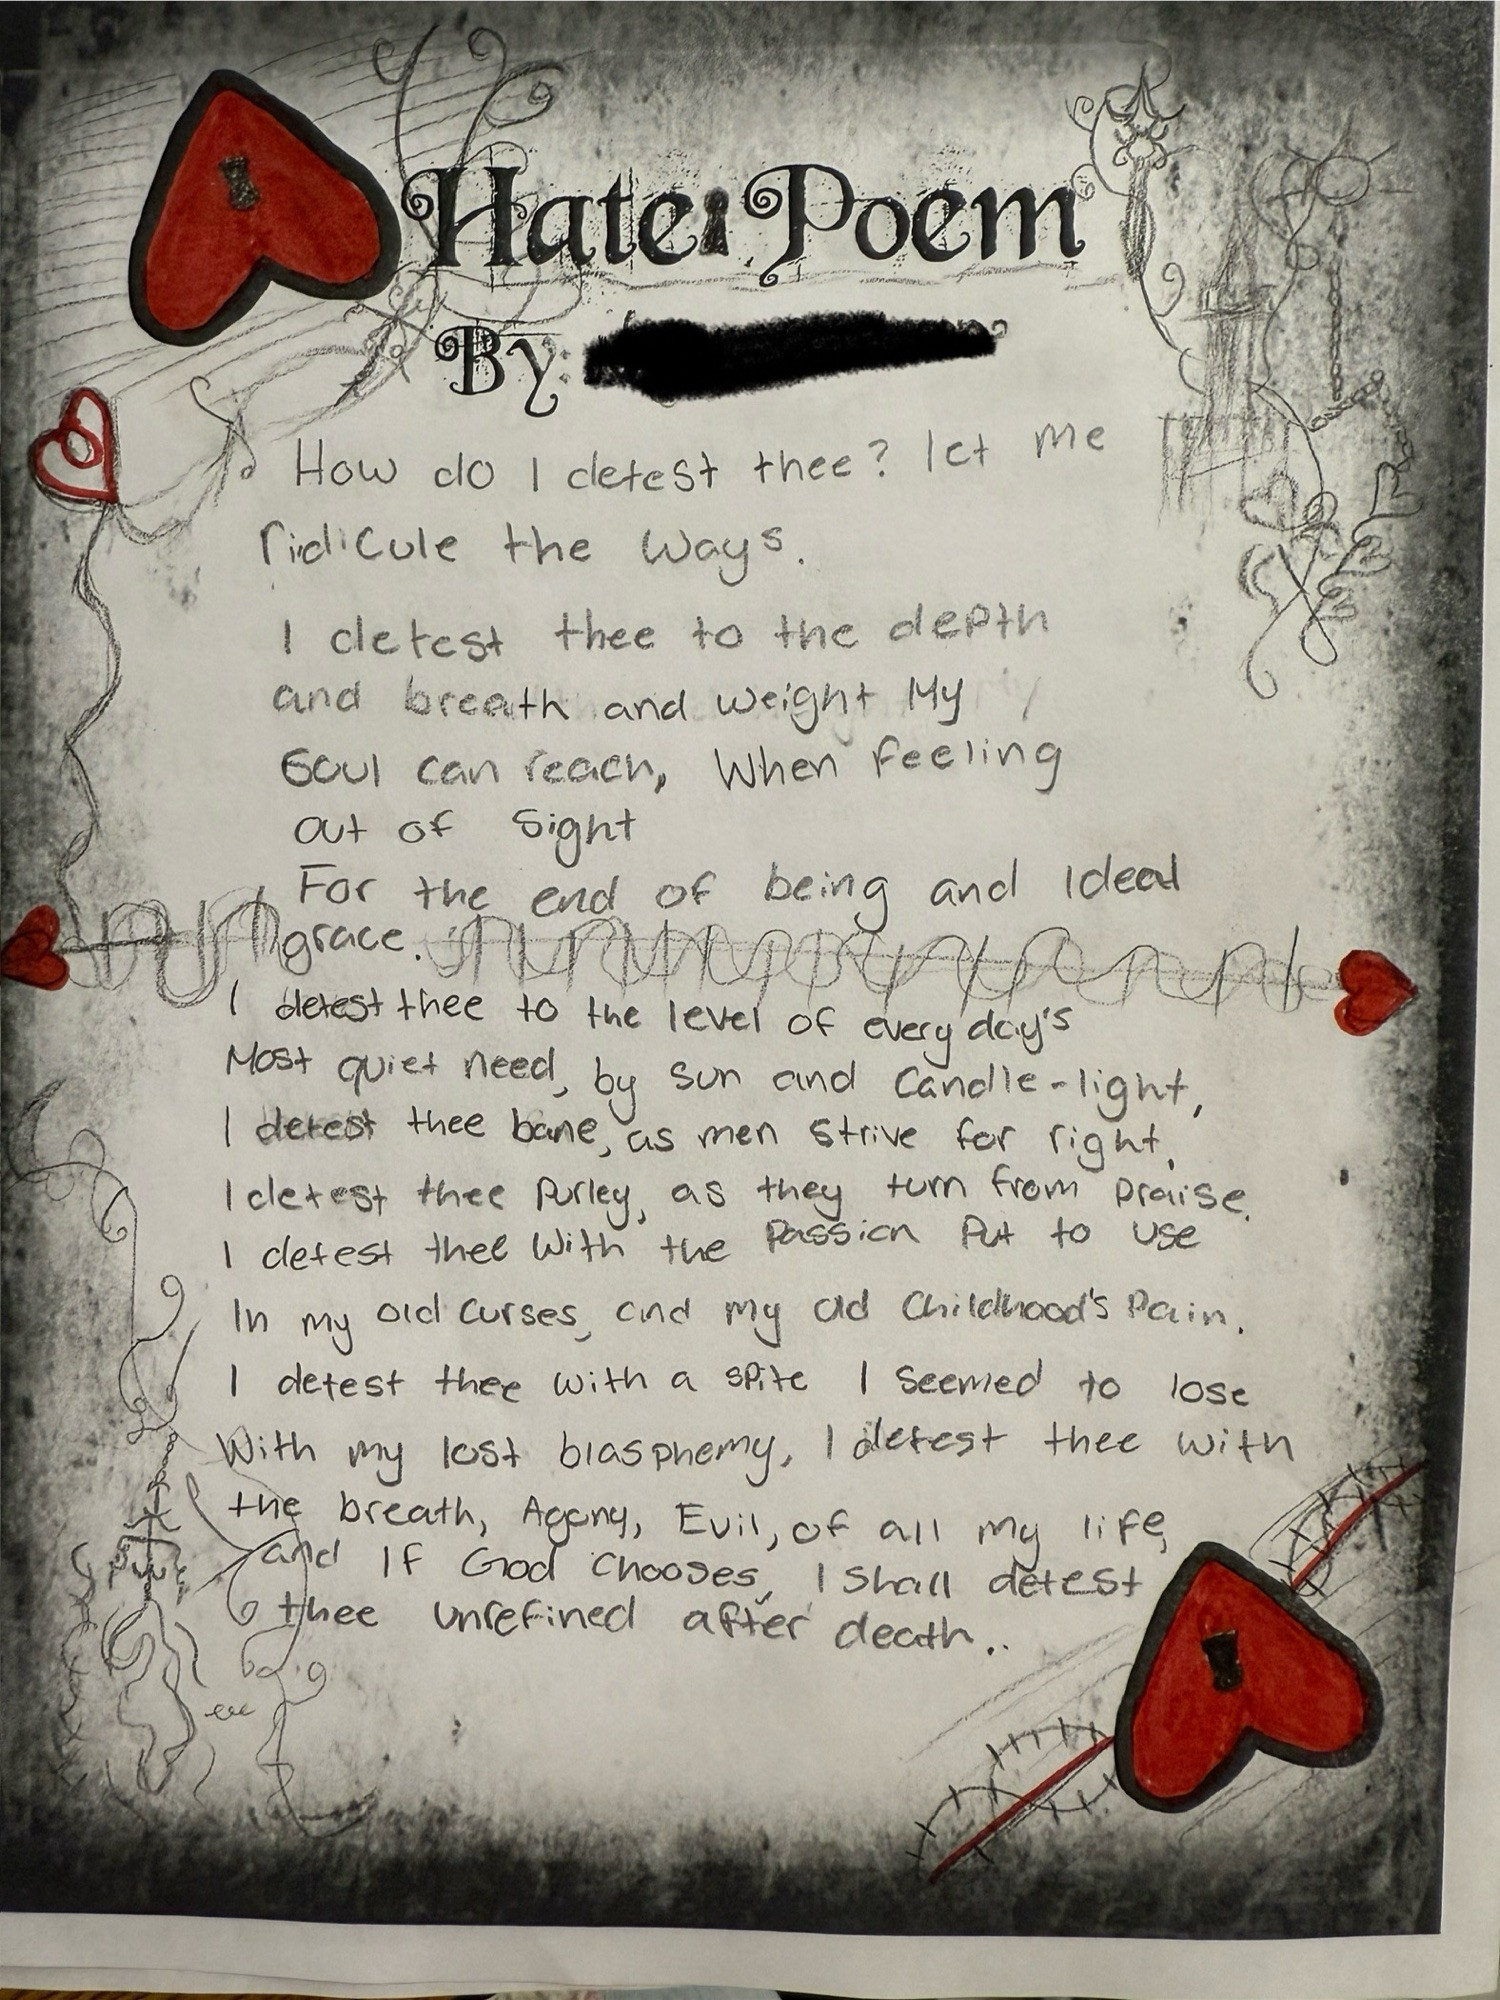 Hate Poem
By:
How do I detest thee? let me
ridicule the ways.
I detest thee to the depth
and breath and weight My
Soul can reach, When feeling
out of sight
For the end of being and Ideal
grace.
I detest thee to the level of every day's
Most quiet need, by sun and Candle-light,
I detest thee bane, as men strive for right,
I detest thee Purley, as they turn from praise.
I detest thee With the Passion Put to use
In my old curses, and my old Childhood's Pain.
I detest thee with a spite I seemed to lose
With my lost blasphemy, I detest thee with
the breath, Agony, Evil, of all my life,
and If God Chooses, I Shall detest
thee unrefined after death..